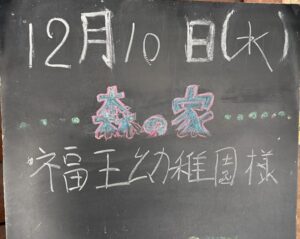 12月10日(水)
森の家
福王幼稚園様